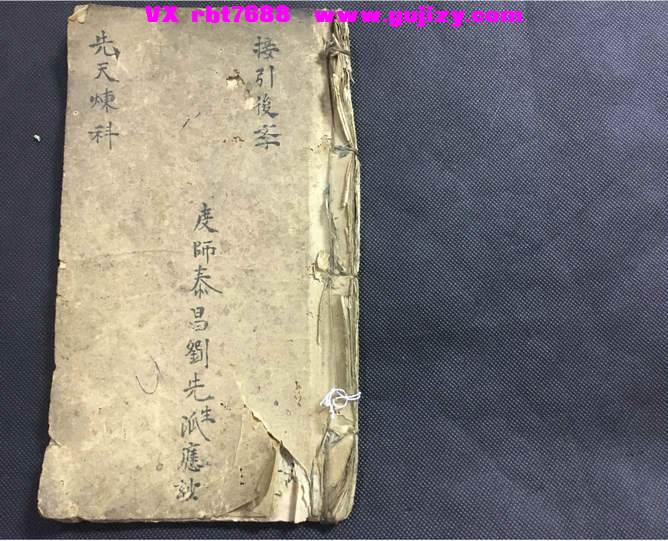 VX rbt7688 www.gujizy.com
接引後案
度師泰昌劉先生派應
先天煉科